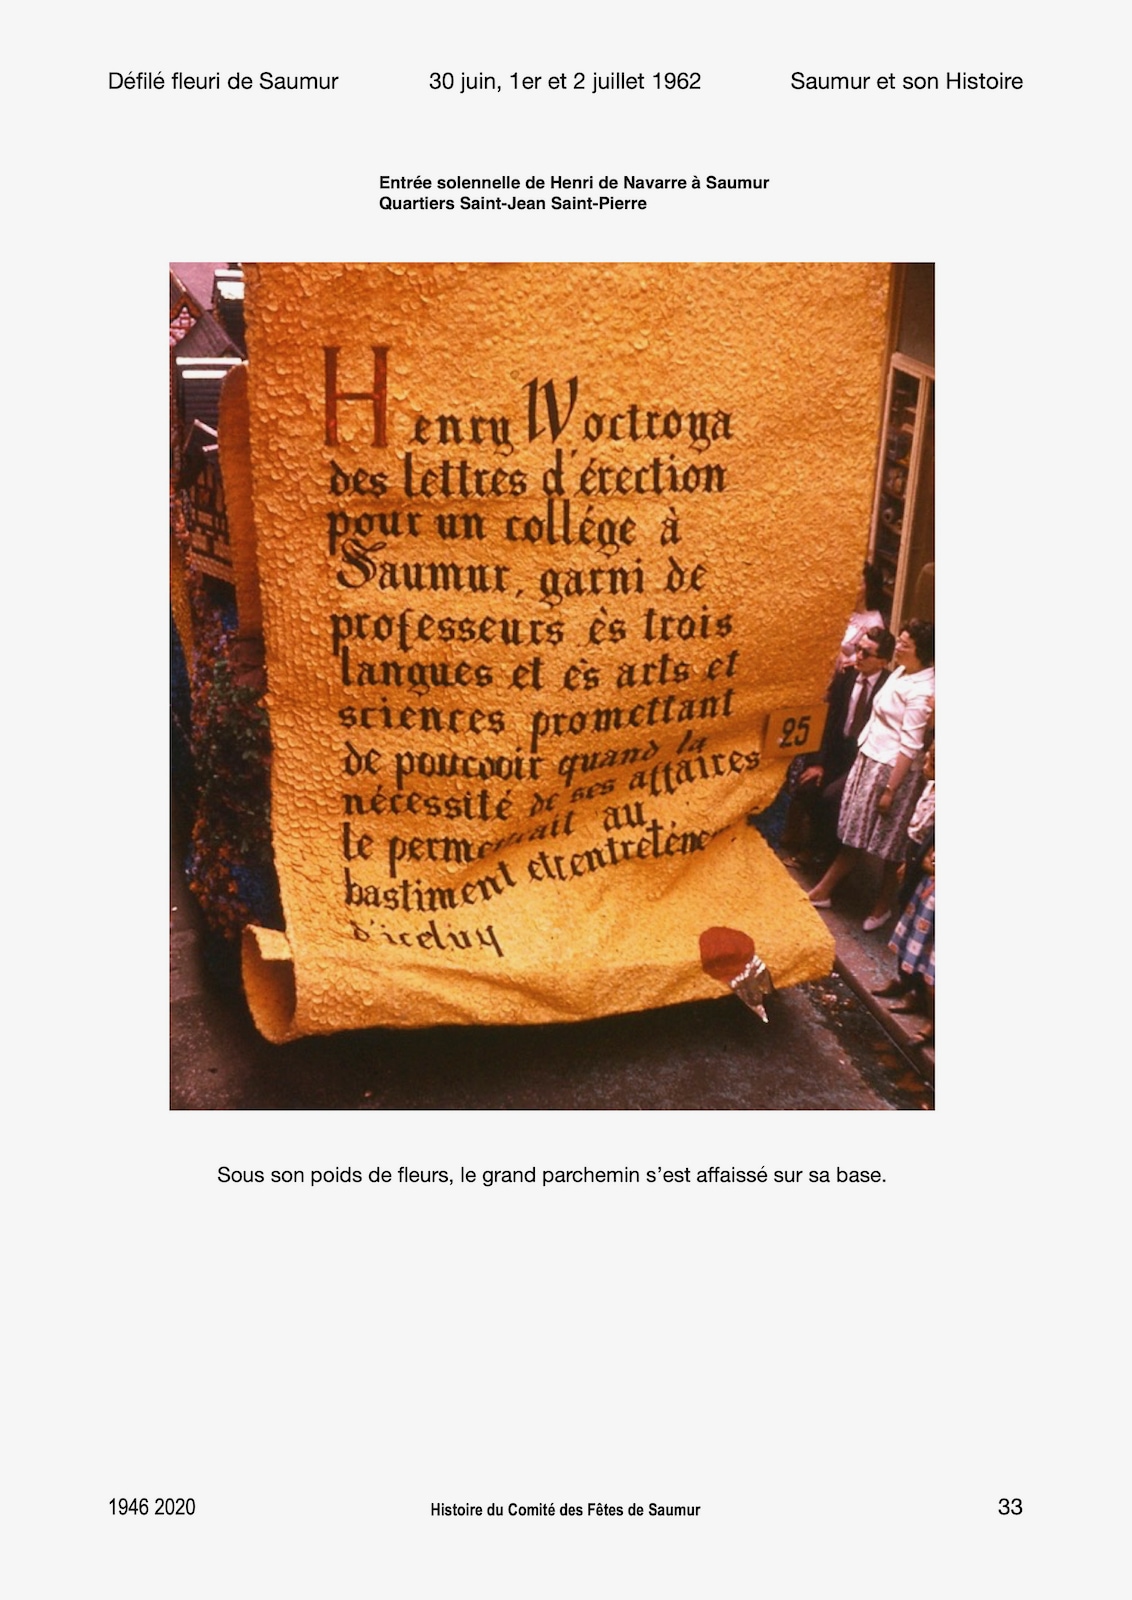 Défilé fleuri de Saumur 30 juin, 1er et 2 juillet 1962 Saumur et son Histoire
Entrée solennelle de Henri de Navarre à Saumur
Quartiers Saint-Jean Saint-Pierre
Henry IV octroya
des lettres d'érection
pour un collége à
Saumur, garni de
professeurs ès trois
langues et ès arts et
sciences promettant
de pourvoir quand la
nécessité de ses affaires
le permettrait au
bastiment et entretène
d'iceluy
25
Sous son poids de fleurs, le grand parchemin s’est affaissé sur sa base.
1946 2020 Histoire du Comité des Fêtes de Saumur 33